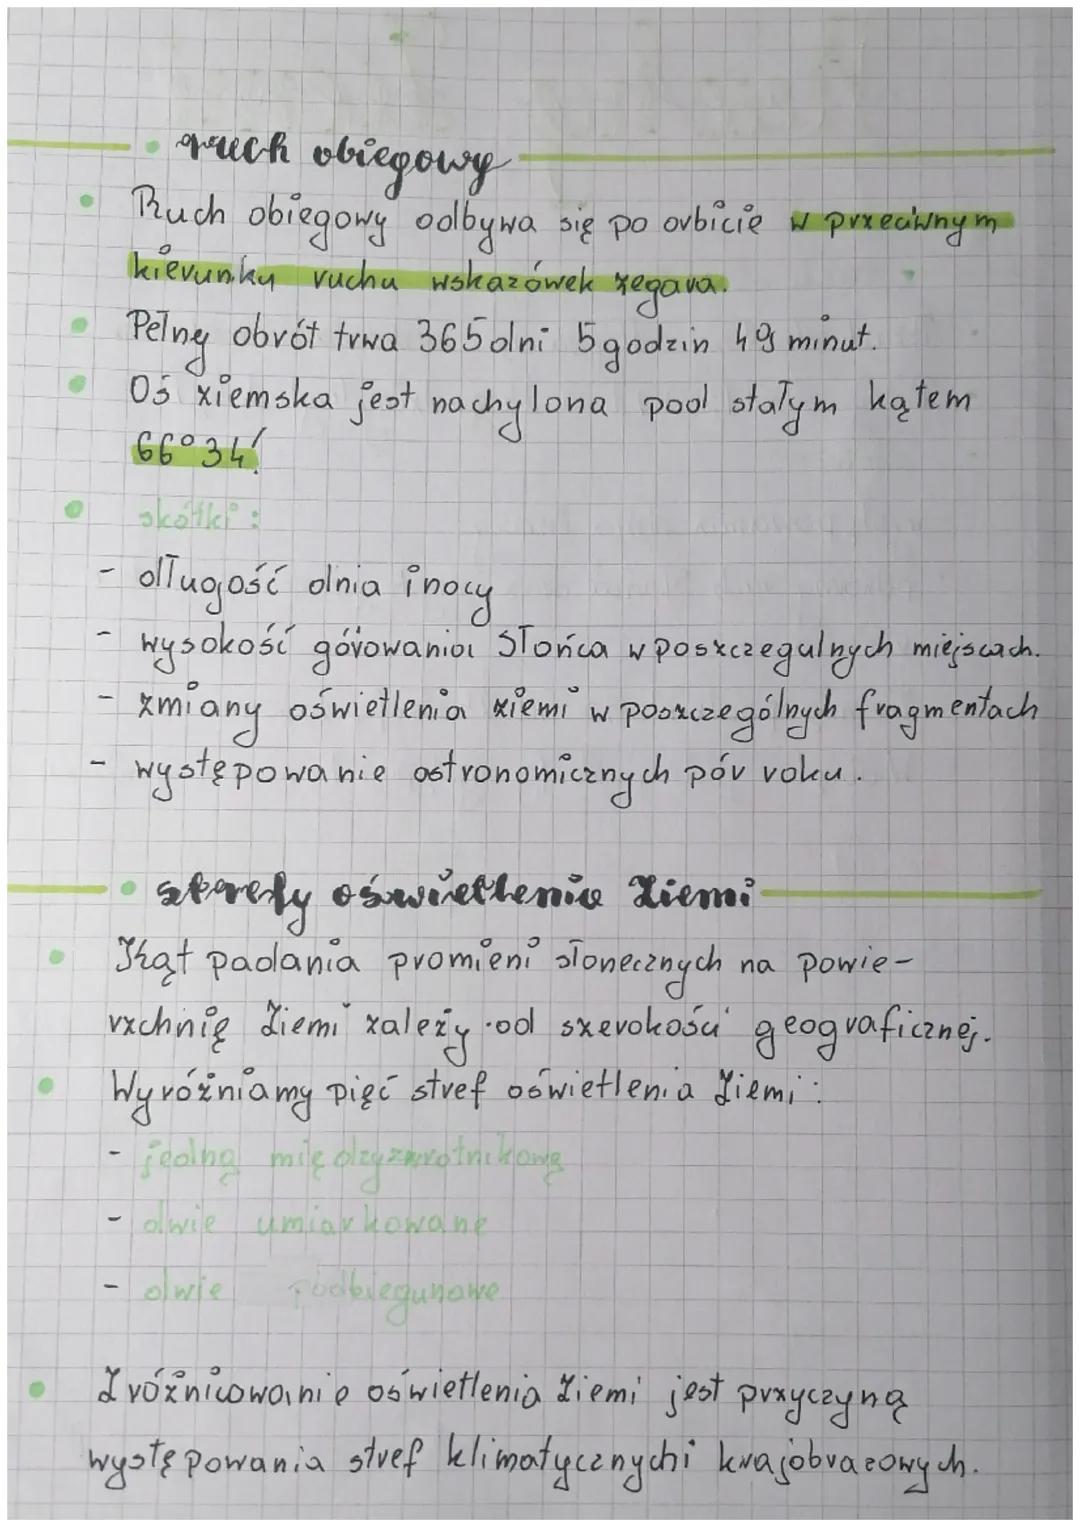 • ruch obiegowy
• Ruch obiegowy odbywa się po orbicie w przeciwnym
kierunku ruchu wskazówek zegara.
• Pełny obrót trwa 365 dni 5 godzin 49 minut.
• Oś ziemska jest nachylona pod stałym kątem
66°34'
• skótki:
- długość dnia i nocy
- wysokość górowania Słońca w poszczegulnych miejscach.
- zmiany oświetlenia ziemi w poszczególnych fragmentach
- występowanie astronomicznych pór roku.
• strefy oświetlenia Ziemi
• Kąt padania promieni słonecznych na powie-
rzchnię Ziemi zależy od szerokości geograficznej.
• Wyróżniamy pięć stref oświetlenia Ziemi:
- jedną międzyzwrotnikową
- dwie umiarkowane
- dwie podbiegunowe
• Zróżnicowanie oświetlenia Ziemi jest przyczyną
występowania stref klimatycznych i krajobrazowych.